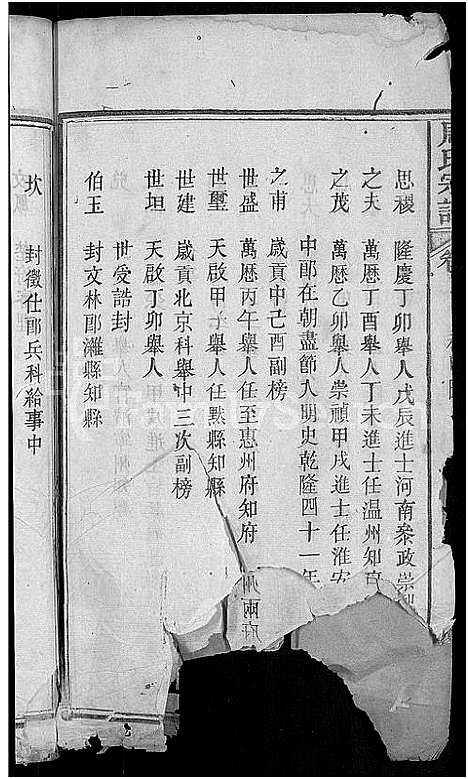 周氏宗譜
卷
思稷 隆慶丁卯舉人戊辰進士河南叅政崇
之夫 萬歷丁酉舉人丁未進士任温州知
之茂 萬歷乙卯舉人崇禎甲戌進士任淮安
中郎在朝盡節入明史乾隆四十一年
之甫 歲貢中己酉副榜
世盛 萬歷丙午舉人任至惠州府知府
州兩府
世璽 天啟甲子舉人任黟縣知縣
世建 歲貢北京科舉中三次副榜
世坦 天啟丁卯舉人
世爰誥封
伯玉 封文林郎濰縣知縣
坎 封徵仕郎兵科給事中